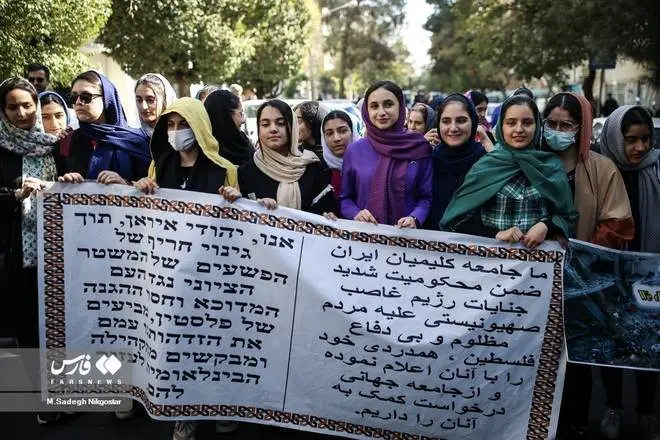 אנו, יהודי איראן, תוך
גינוי חריף של
הפשעים של המשטר
הציוני נגד העם
המדוכא וחסר ההגנה
של פלסטין, מביעים
את הזדהות עמם
ומבקשים
הבינלאומית
ما جامعه کلیمیان ایران
ضمن محکومیت شدید
جنایات رژیم غاصب
صهیونیستی علیه مردم
مظلوم و بی دفاع
فلسطین ، همدردی خود
را با آنان اعلام نموده
و از جامعه جهانی
درخواست کمک به
آنان را داریم.
فارس
FARSNEWS
M.Sadegh Nikgostar